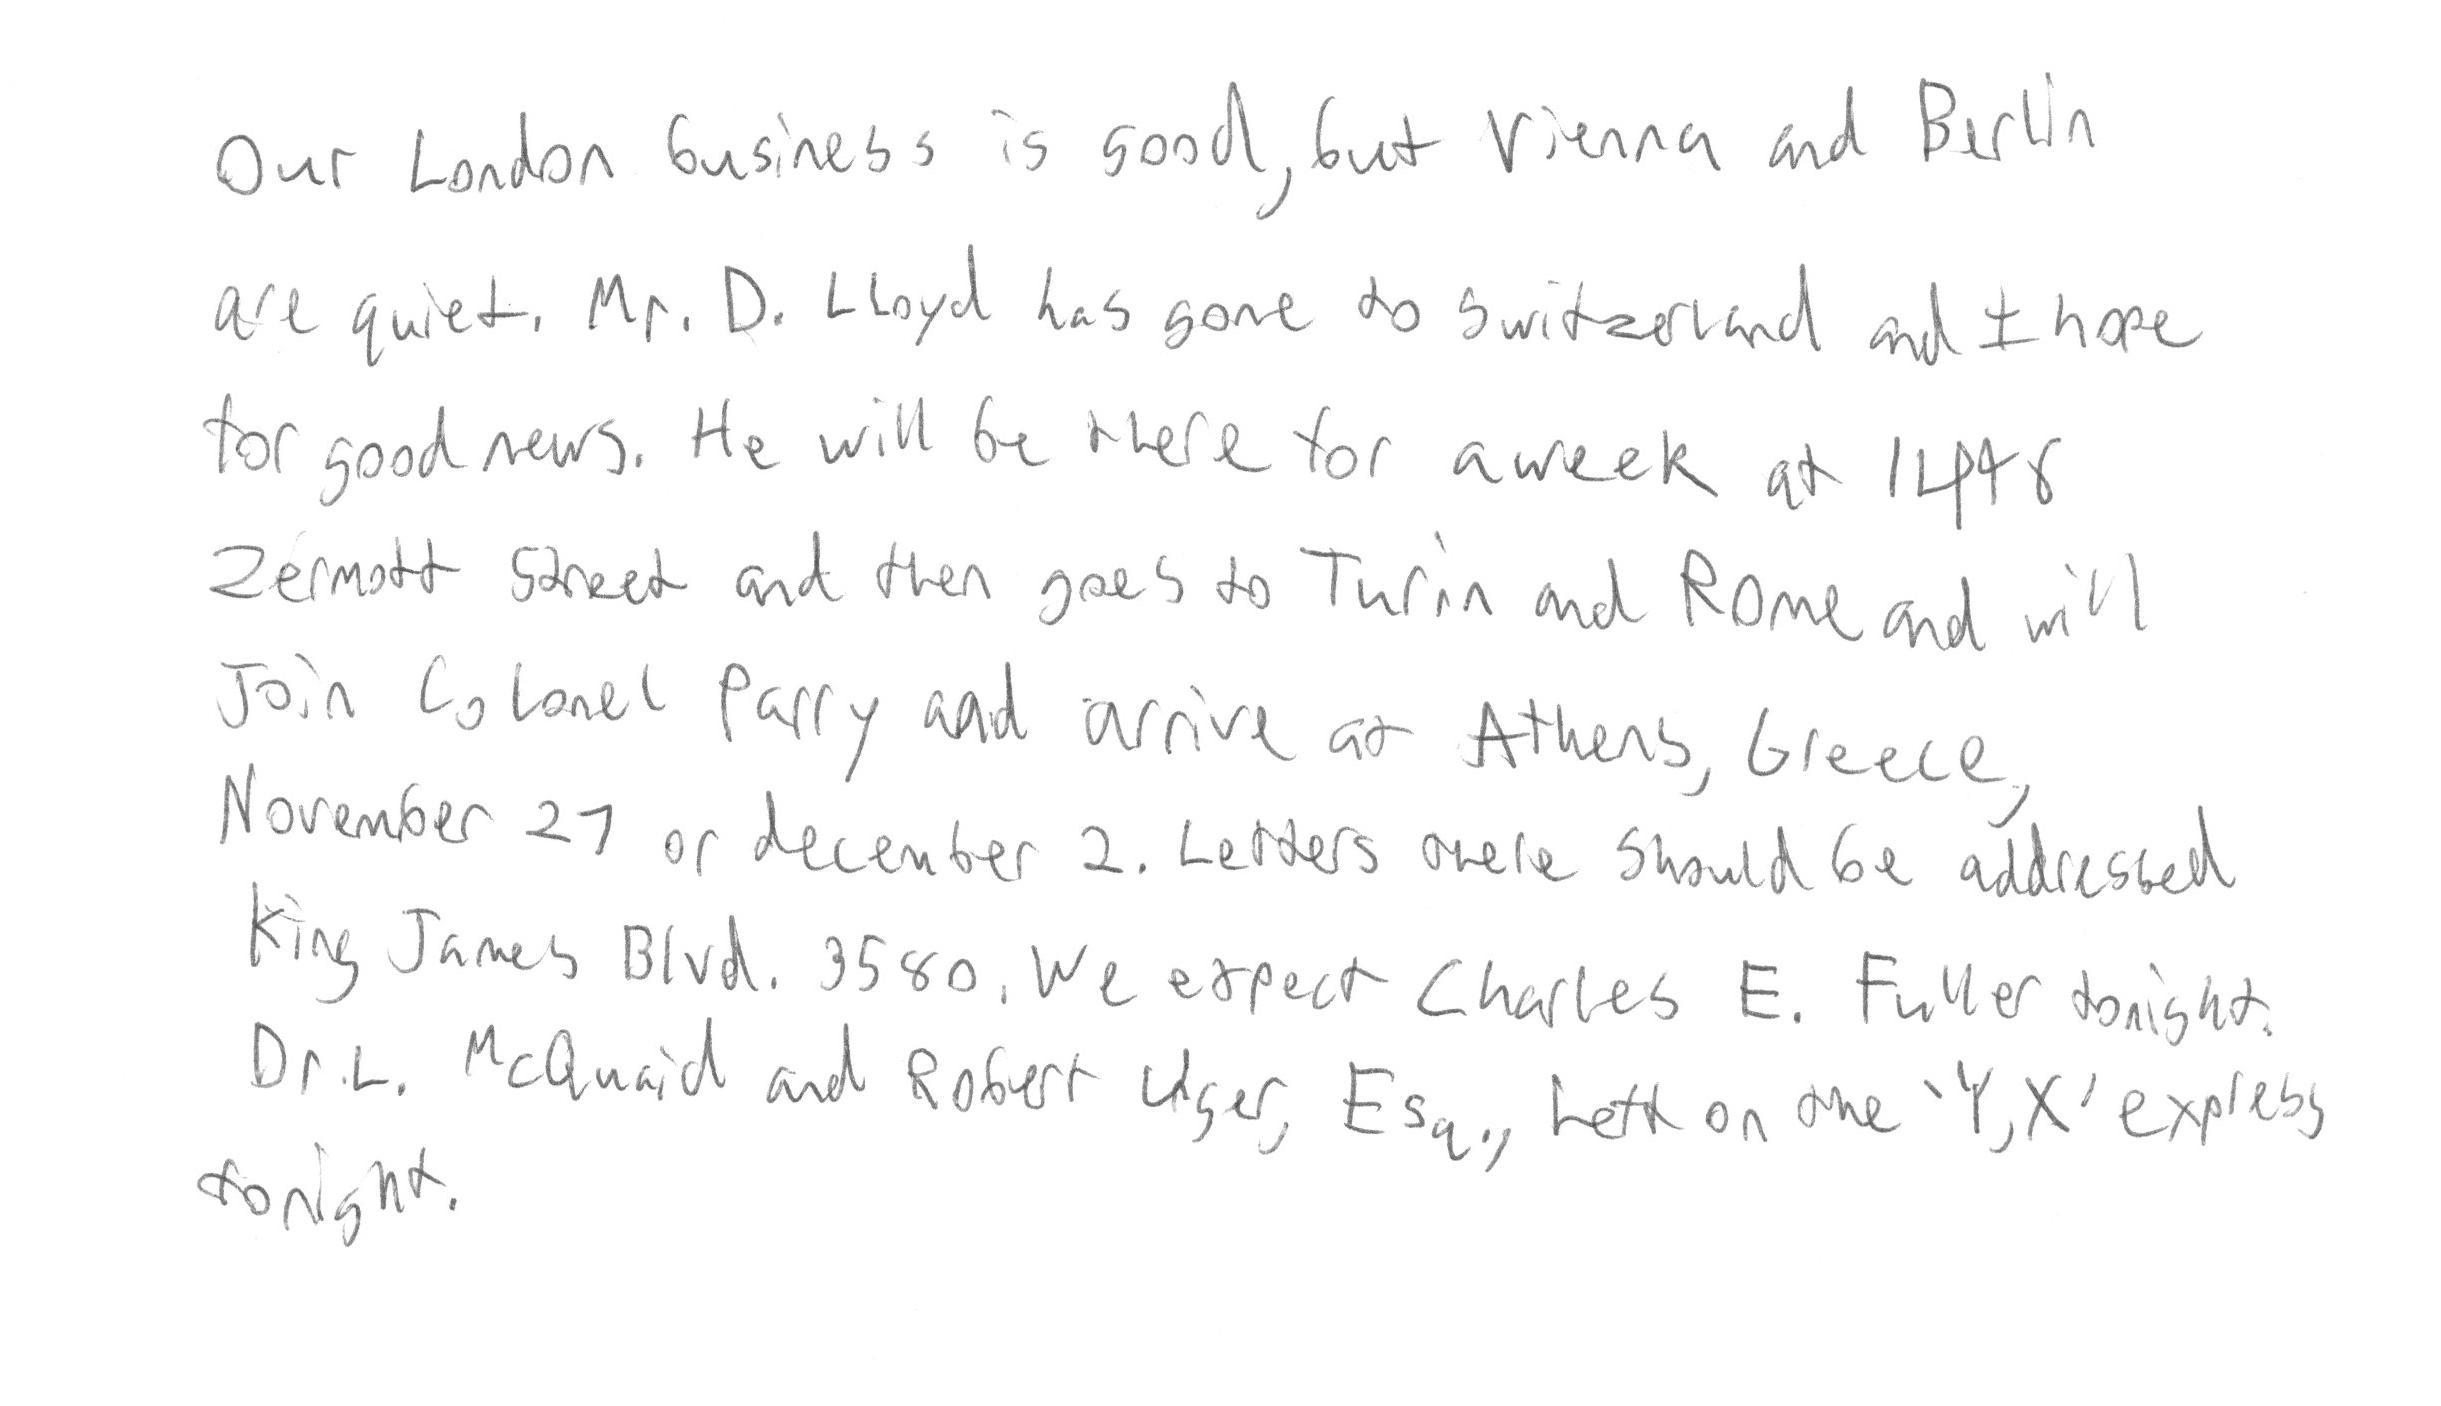 Our London business is good, but Vienna and Berlin
are quiet. Mr. D. Lloyd has gone to Switzerland and I hope
for good news. He will be there for a week at 1448
Zermott Street and then goes to Turin and Rome and will
Join Colonel Parry and arrive at Athens, Greece,
November 27 or december 2. Letters there should be addressed
King James Blvd. 3580. We expect Charles E. Fuller tonight.
Dr. L. McQuaid and Robert Unger, Esq., left on the 'Y,X' express
tonight.